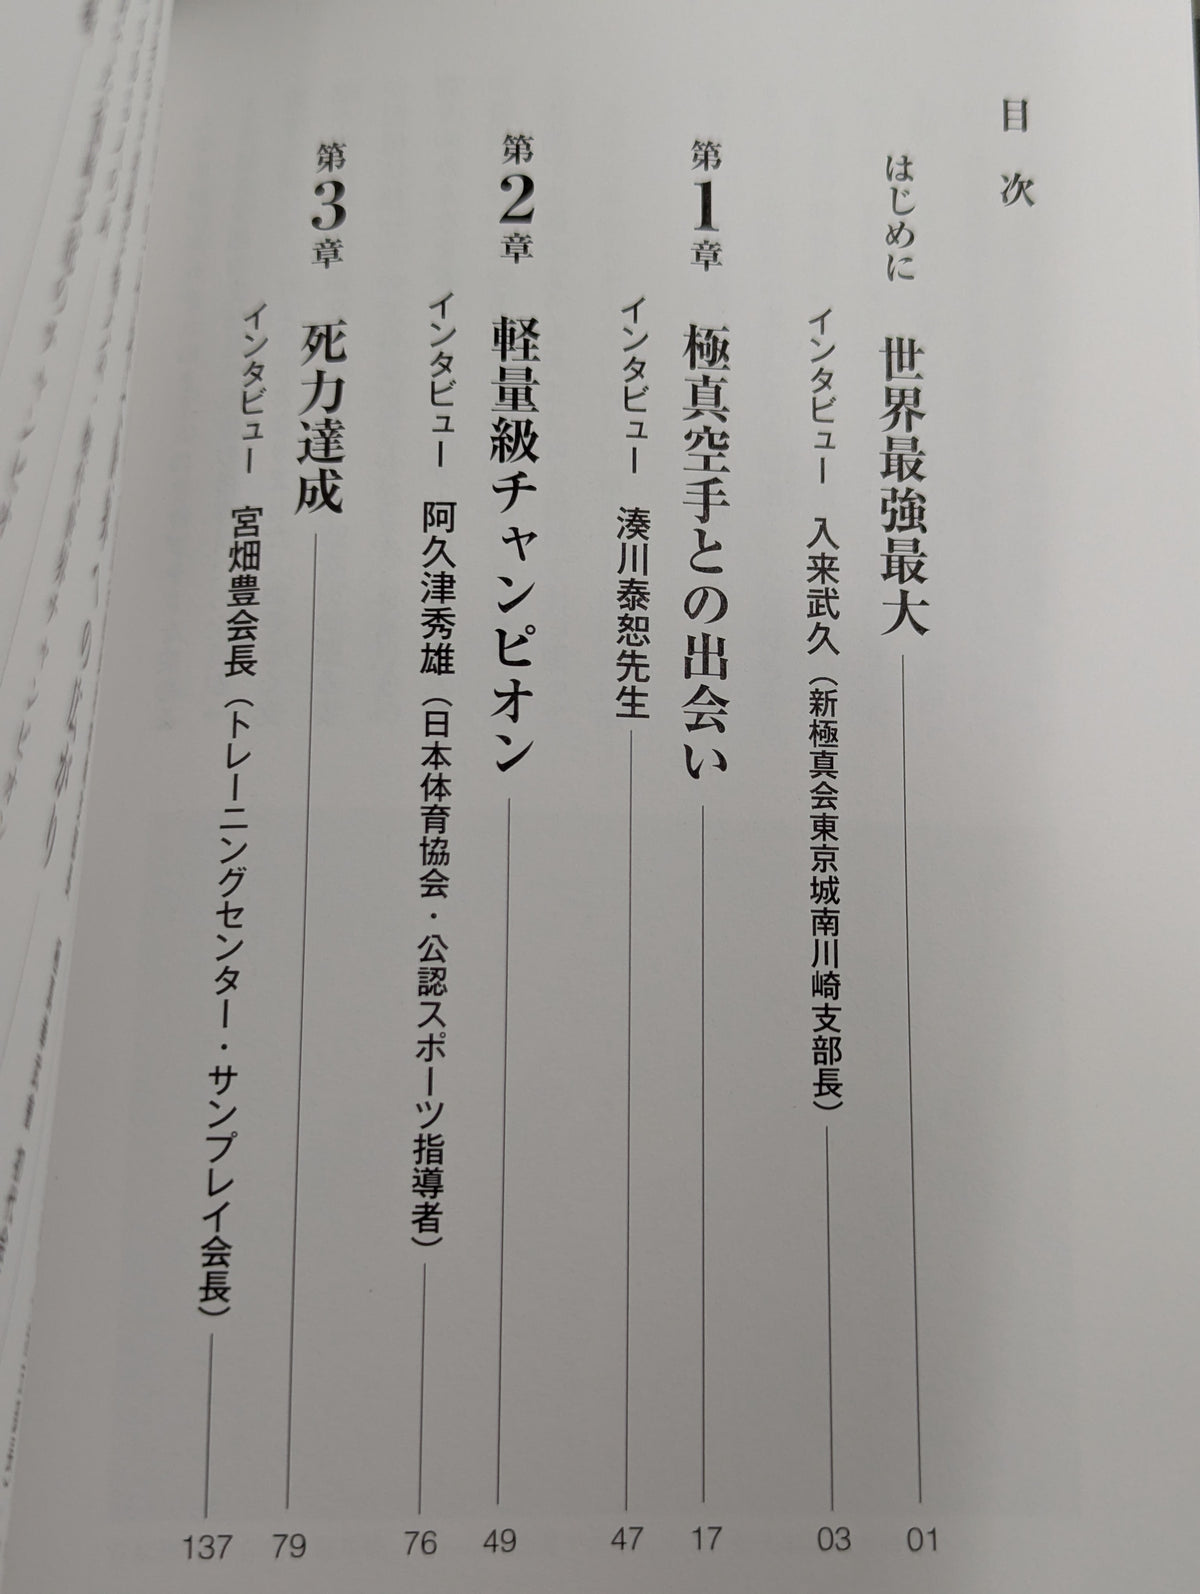 目次
はじめに 世界最強最大 01
インタビュー 入来武久（新極真会東京城南川崎支部長） 03
第1章 極真空手との出会い 17
インタビュー 湊川泰恕先生 47
第2章 軽量級チャンピオン 49
インタビュー 阿久津秀雄（日本体育協会・公認スポーツ指導者） 76
第3章 死力達成 79
インタビュー 宮畑豊会長（トレーニングセンター・サンプレイ会長） 137